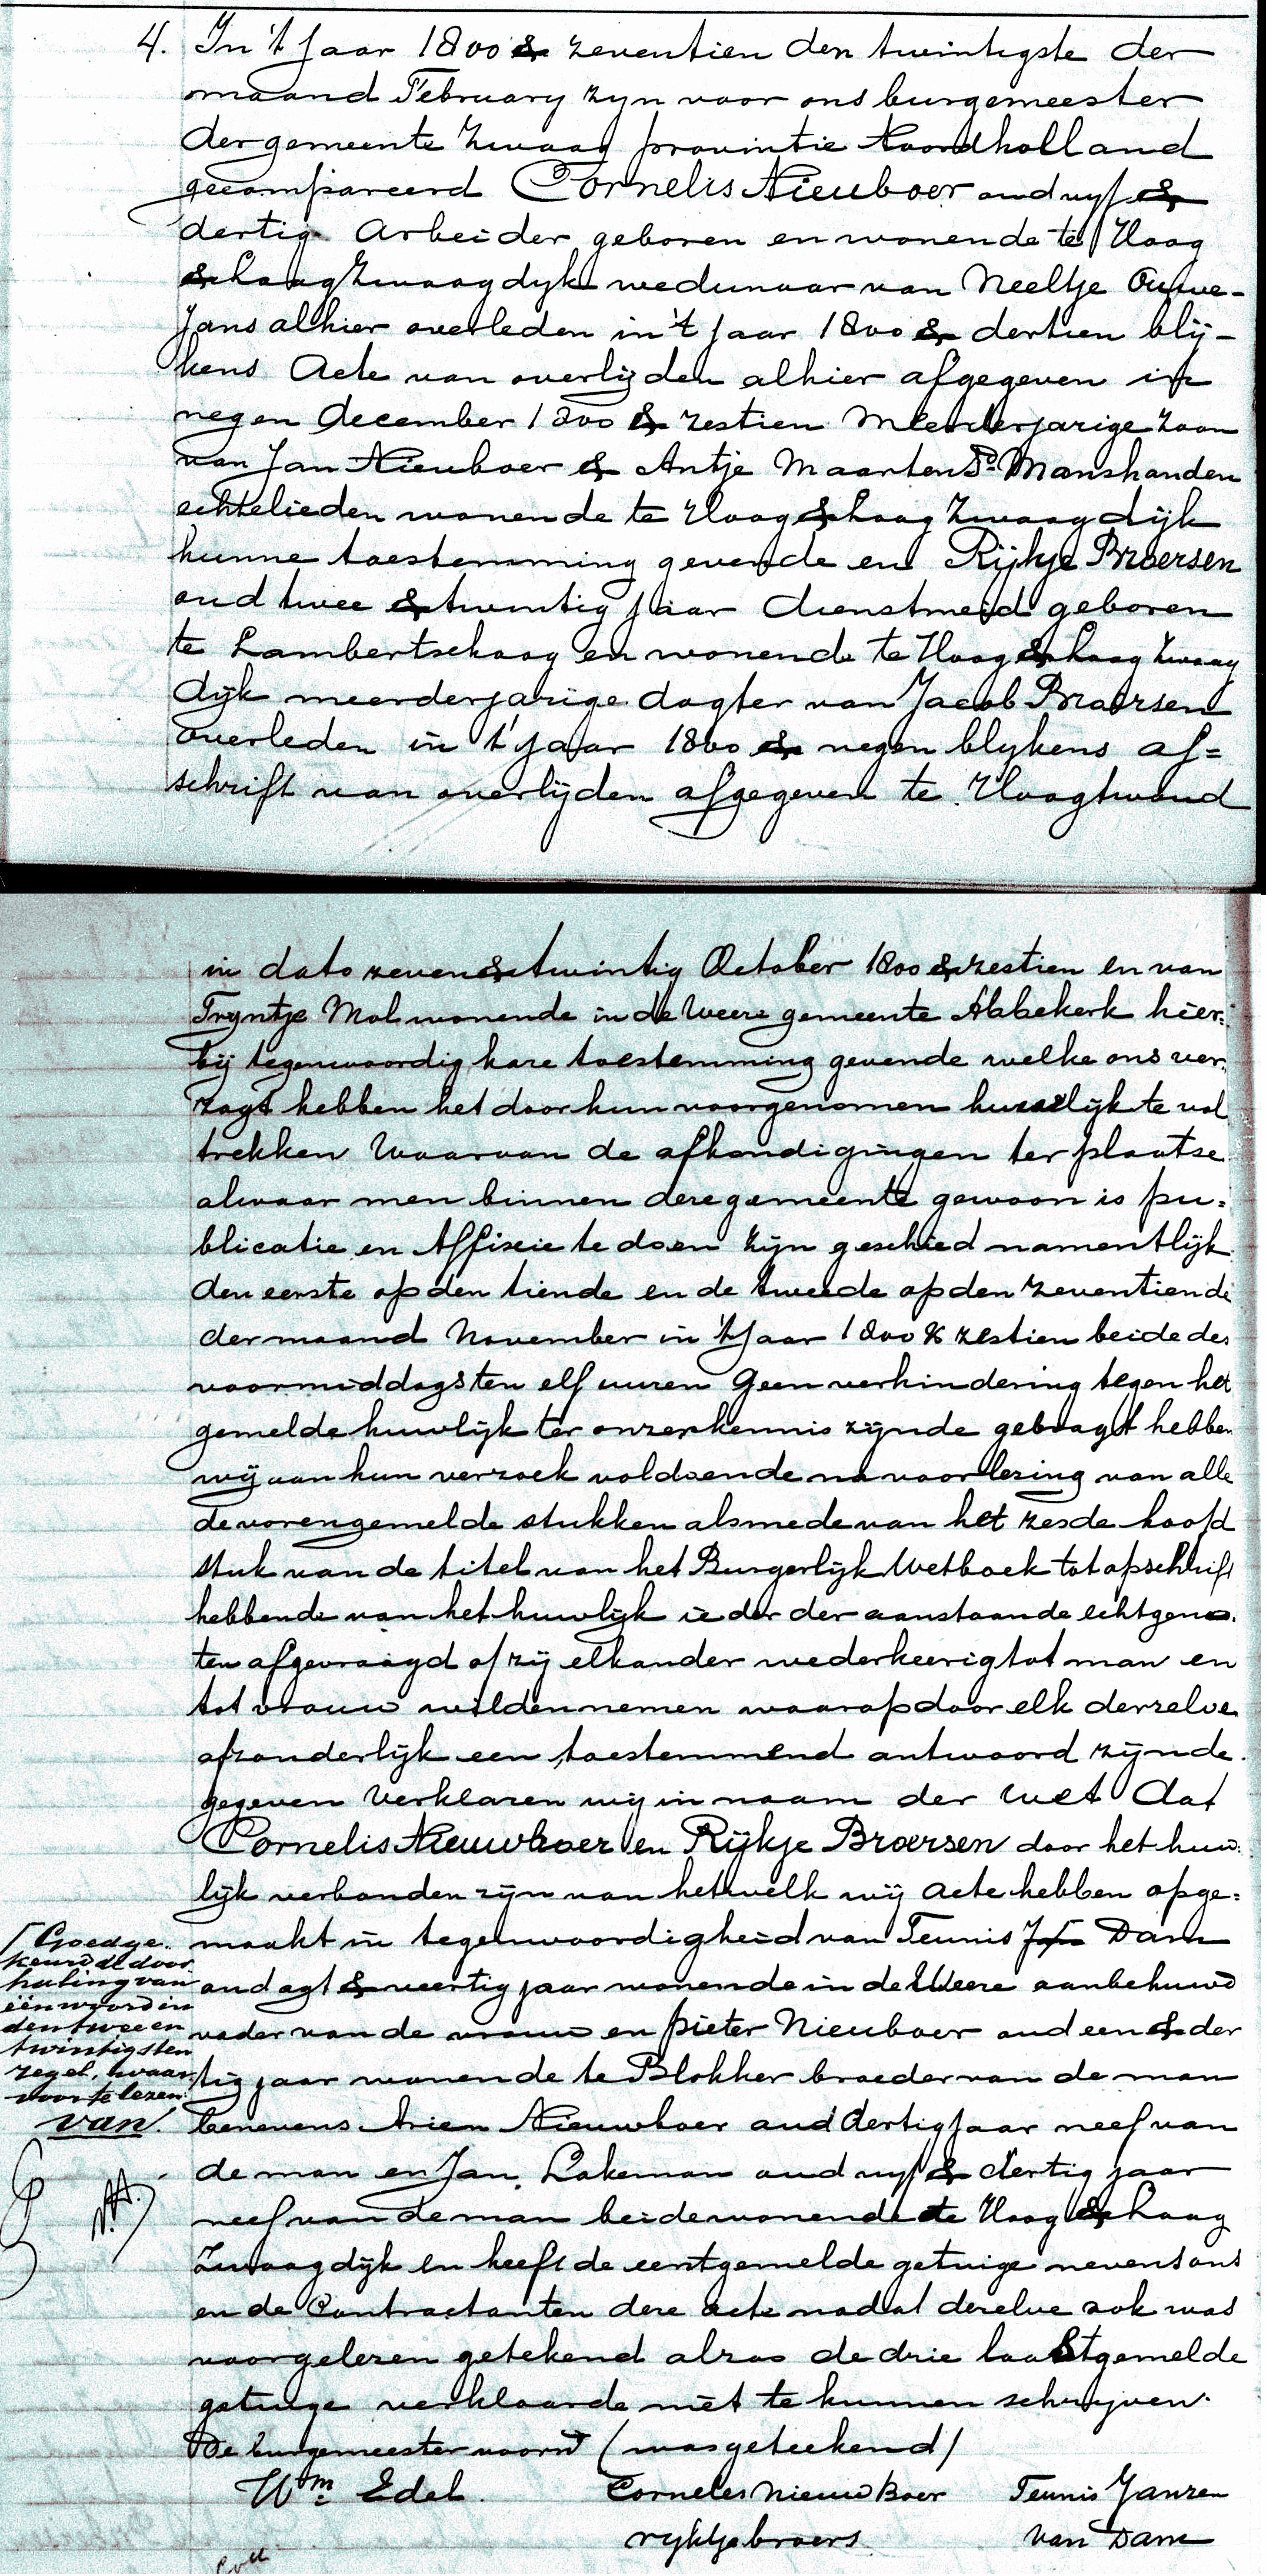 4. In 't Jaar 1800 & zeventien den twintigste der
maand February zyn voor ons burgemeester
der gemeente Zwaag provintie Noordholland
gecompareerd Cornelis Nieuboer oud vyf &
dertig Arbeider geboren en wonende te Hoog
& haag Zwaagdyk weduwaar van Neeltje Ouwe-
Jans alhier overleden in 't jaar 1800 & dertien blij-
kens Acte van overlijden alhier afgegeven in
negen december 1800 & zestien Meerderjarige zoon
van Jan Nieuboer & Antje Maartens Ds Manshanden
echtelieden wonende te Hoog & haag Zwaagdijk
hunne toestemming gevende en Rijkje Broersen
oud twee & twintig jaar dienstmeid geboren
te Lambertschaag en wonende te Hoog & haag Zwaag
dijk meerderjarige dogter van Jacob Broersen
overleden in t' jaar 1800 & negen blykens af=
schrift van overlijden afgegeven te Hoogtwoud
in dato zeven & twintig October 1800 & zestien en van
Tryntje Mol wonende in de Weere gemeente Abbekerk hier=
bij tegenwoordig hare toestemming gevende welke ons ver=
zogt hebben het door hun voorgenomen huwelijk te vol
trekken Waarvan de afkondigingen ter plaatse
alwaar men binnen dere gemeente gewoon is pu=
blicatie en Affixie te doen zijn geschied namentlijk
den eerste op den tiende en de tweede op den zeventiende
der maand November in 't Jaar 1800 & zestien beide des
voormiddags ten elf uuren Geen verhindering tegen het
gemelde huwlijk ter onzer kennis zijnde gebragt hebben
wij aan hun verzoek voldoende na voorlezing van alle
de vorengemelde stukken alsmede van het zesde hoofd
stuk van de titel van het Burgerlijk Wetboek tot opschrift
hebbende van het huwlijk ieder der aanstaande echtgeno=
ten afgevraagd of zij elkander wederkeerig tot man en
tot vrouw wilden nemen waarop door elk derzelve
afzonderlijk een toestemmend antwoord zijnde
gegeven Verklaren wij in naam der Wet Dat
Cornelis Nieuwboer en Rijkje Broersen door het huw=
lijk verbonden zijn van hetwelk wij Acte hebben opge=
maakt in tegenwoordigheid van Teunis Dam
oud agt & veertig jaar wonende in de Weere aanbehuwd
vader van de vrouw en pieter Nieuboer oud een & der
tig jaar wonende te Blokker broeder van de man
benevens Arien Nieuwboer oud dertig jaar neef van
de man en Jan Lakeman oud vyf & dertig jaar
neef van de man beide wonende te Hoog & haag
Zwaagdijk en heeft de eerstgemelde getuige nevens ons
en de Contractanten dere acte nadat derelve ook was
voorgelezen getekend alzoo de drie laatstgemelde
getuige verklaarde niet te kunnen schrijven.
De burgemeester voorn^d (was geteekend)
W^m Edel. Corneles Nieuw Boer Teunis Janzen
rykljebroers van Dam
[ Goedge-
keurd de door
haling van
één woord in
den twee en
twintigsten
regel, waar
voor te lezen:
van.